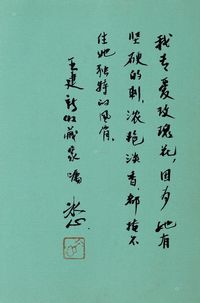 我喜爱玫瑰花，因为她有
坚硬的刺，浓艳淡香，都掩不
住她独特的风骨。
王建新收藏家嘱
冰心